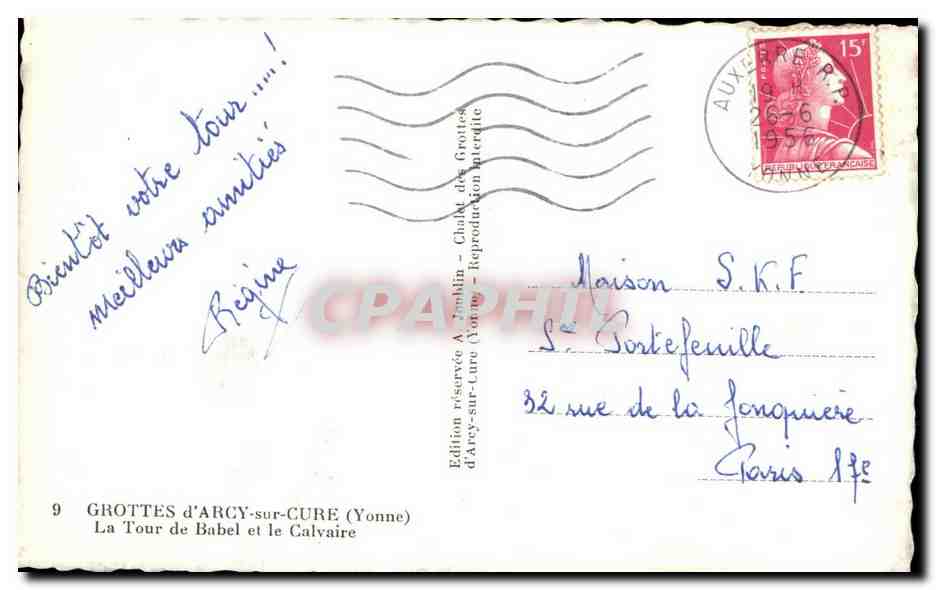 Bientôt votre tour.....!
meilleurs amitiés
Régine
Edition réservée A. Joublin - Chalet des Grottes
d'Arcy-sur-Cure (Yonne) - Reproduction interdite
CPAPHIL
AUXERRE R.P.
19 H
26-6
1956
YONNE
POSTES
15F
REPUBLIQUE FRANÇAISE
Maison S.K.F.
Sce Portefeuille
32 rue de la Jonquière
Paris 17e
9 GROTTES d'ARCY-sur-CURE (Yonne)
La Tour de Babel et le Calvaire